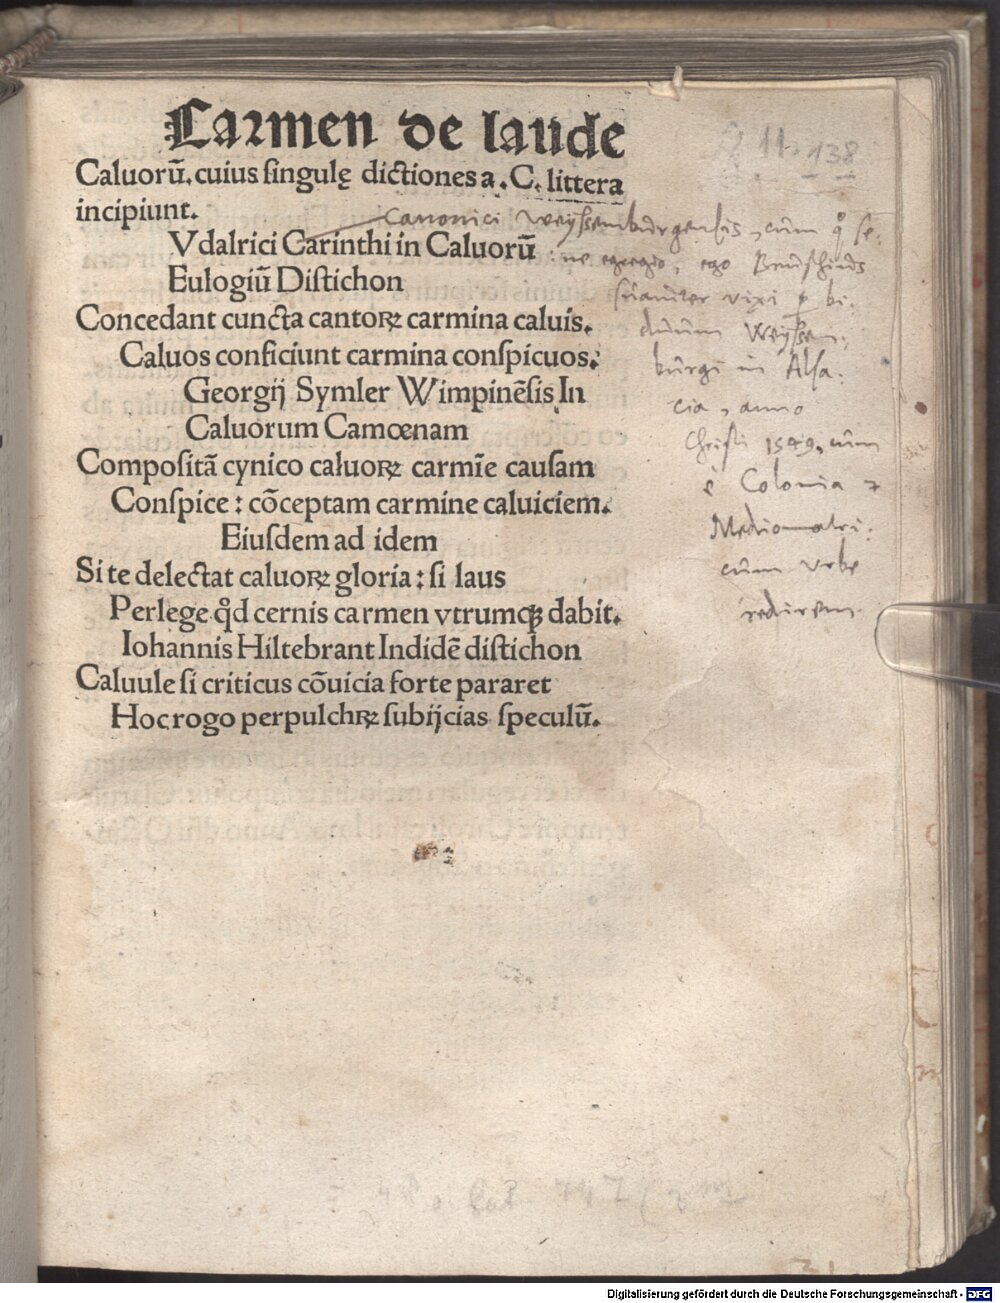 Carmen de laude
Caluorū. cuius singulę dictiones a .C. littera
incipiunt.
Vdalrici Carinthi in Caluorū
Eulogiū Distichon
Concedant cuncta cantoꝝ carmina caluis.
Caluos conficiunt carmina conspicuos.
Georgij Symler Wimpinēsis In
Caluorum Camœnam
Compositā cynico caluoꝝ carmīe causam
Conspice : cōceptam carmine caluiciem.
Eiusdem ad idem
Si te delectat caluoꝝ gloria : si laus
Perlege qd̛ cernis carmen vtrumqꝫ dabit.
Iohannis Hiltebrant Indidē distichon
Caluule si criticus cōuicia forte pararet
Hoc rogo perpulchꝝ subijcias speculū.
11. 138
Canonici Weyssenburgensis, cum q° se:
ne egregio, ego Bruschius
suauiter vixi p bi:
duum Weyssen:
burgi in Alsa:
cia, anno
Christi 1549, cum
è Colonia
Mediomatri:
cum vrbe
redirem.
Digitalisierung gefördert durch die Deutsche Forschungsgemeinschaft - DFG